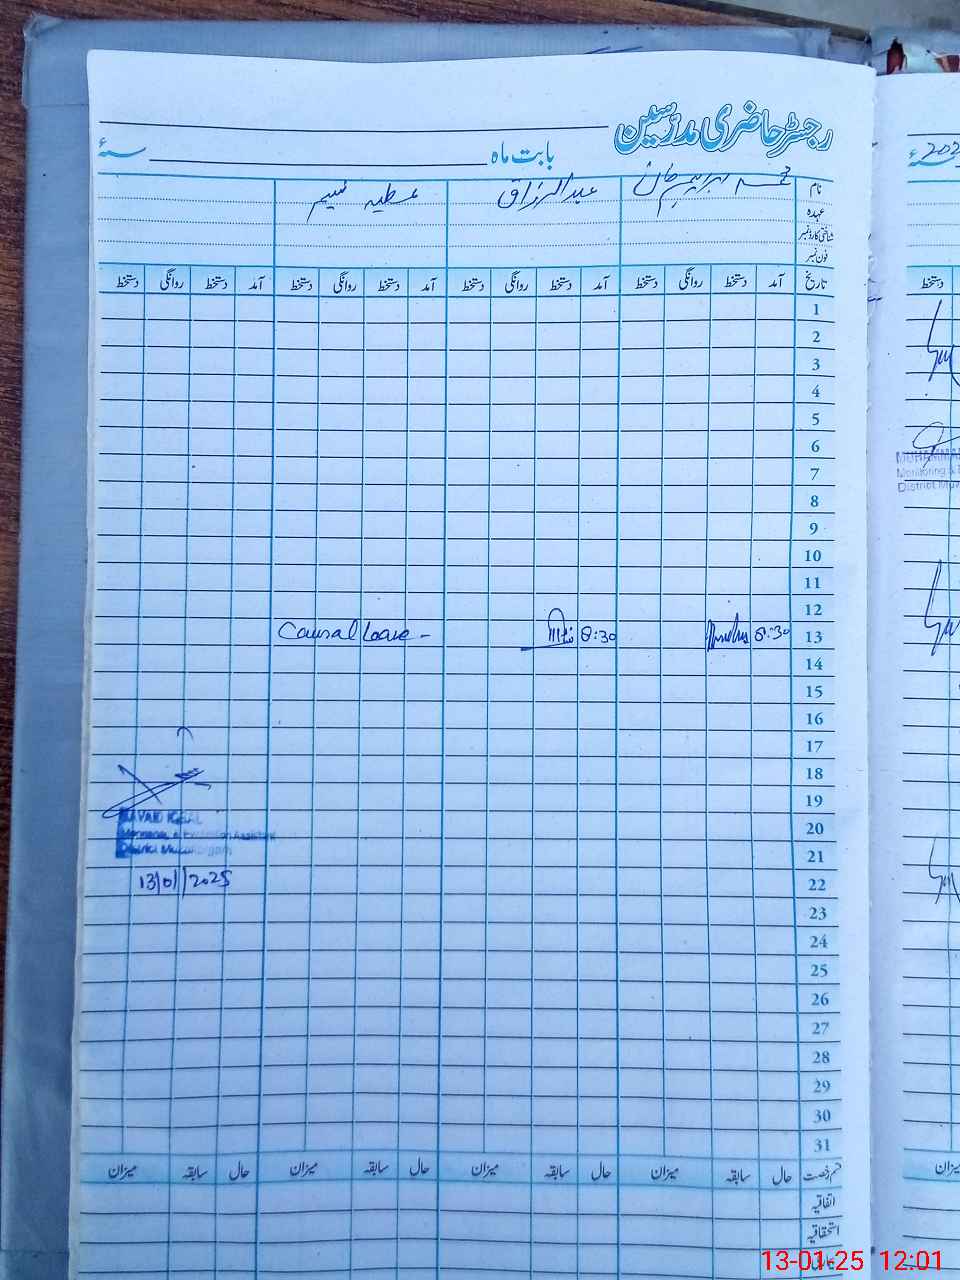 رجسٹر حاضری مدرسین
بابت ماہ ــــــ سنہء
نام محمد ابراہیم خان عبدالرزاق عطیہ نسیم
عہدہ
شناختی کارڈ نمبر
فون نمبر
تاریخ آمد دستخط روانگی دستخط آمد دستخط روانگی دستخط آمد دستخط روانگی دستخط آمد دستخط روانگی دستخط
1
2
3
4
5
6
7
8
9
10
11
12
13 8:30 8:30 Causal Leave -
14
15
16
17
18
19
20
21
22
23
24
25
26
27
28
29
30
31
JAVAID IQBAL
Assistant
District
13/01/2025
قسم رخصت حال سابقہ میزان حال سابقہ میزان حال سابقہ میزان حال سابقہ میزان
اتفاقیہ
استحقاقیہ
202
دستخط
MUHAMMA
Monitoring &
District Muz
میزان
13-01-25 12:01